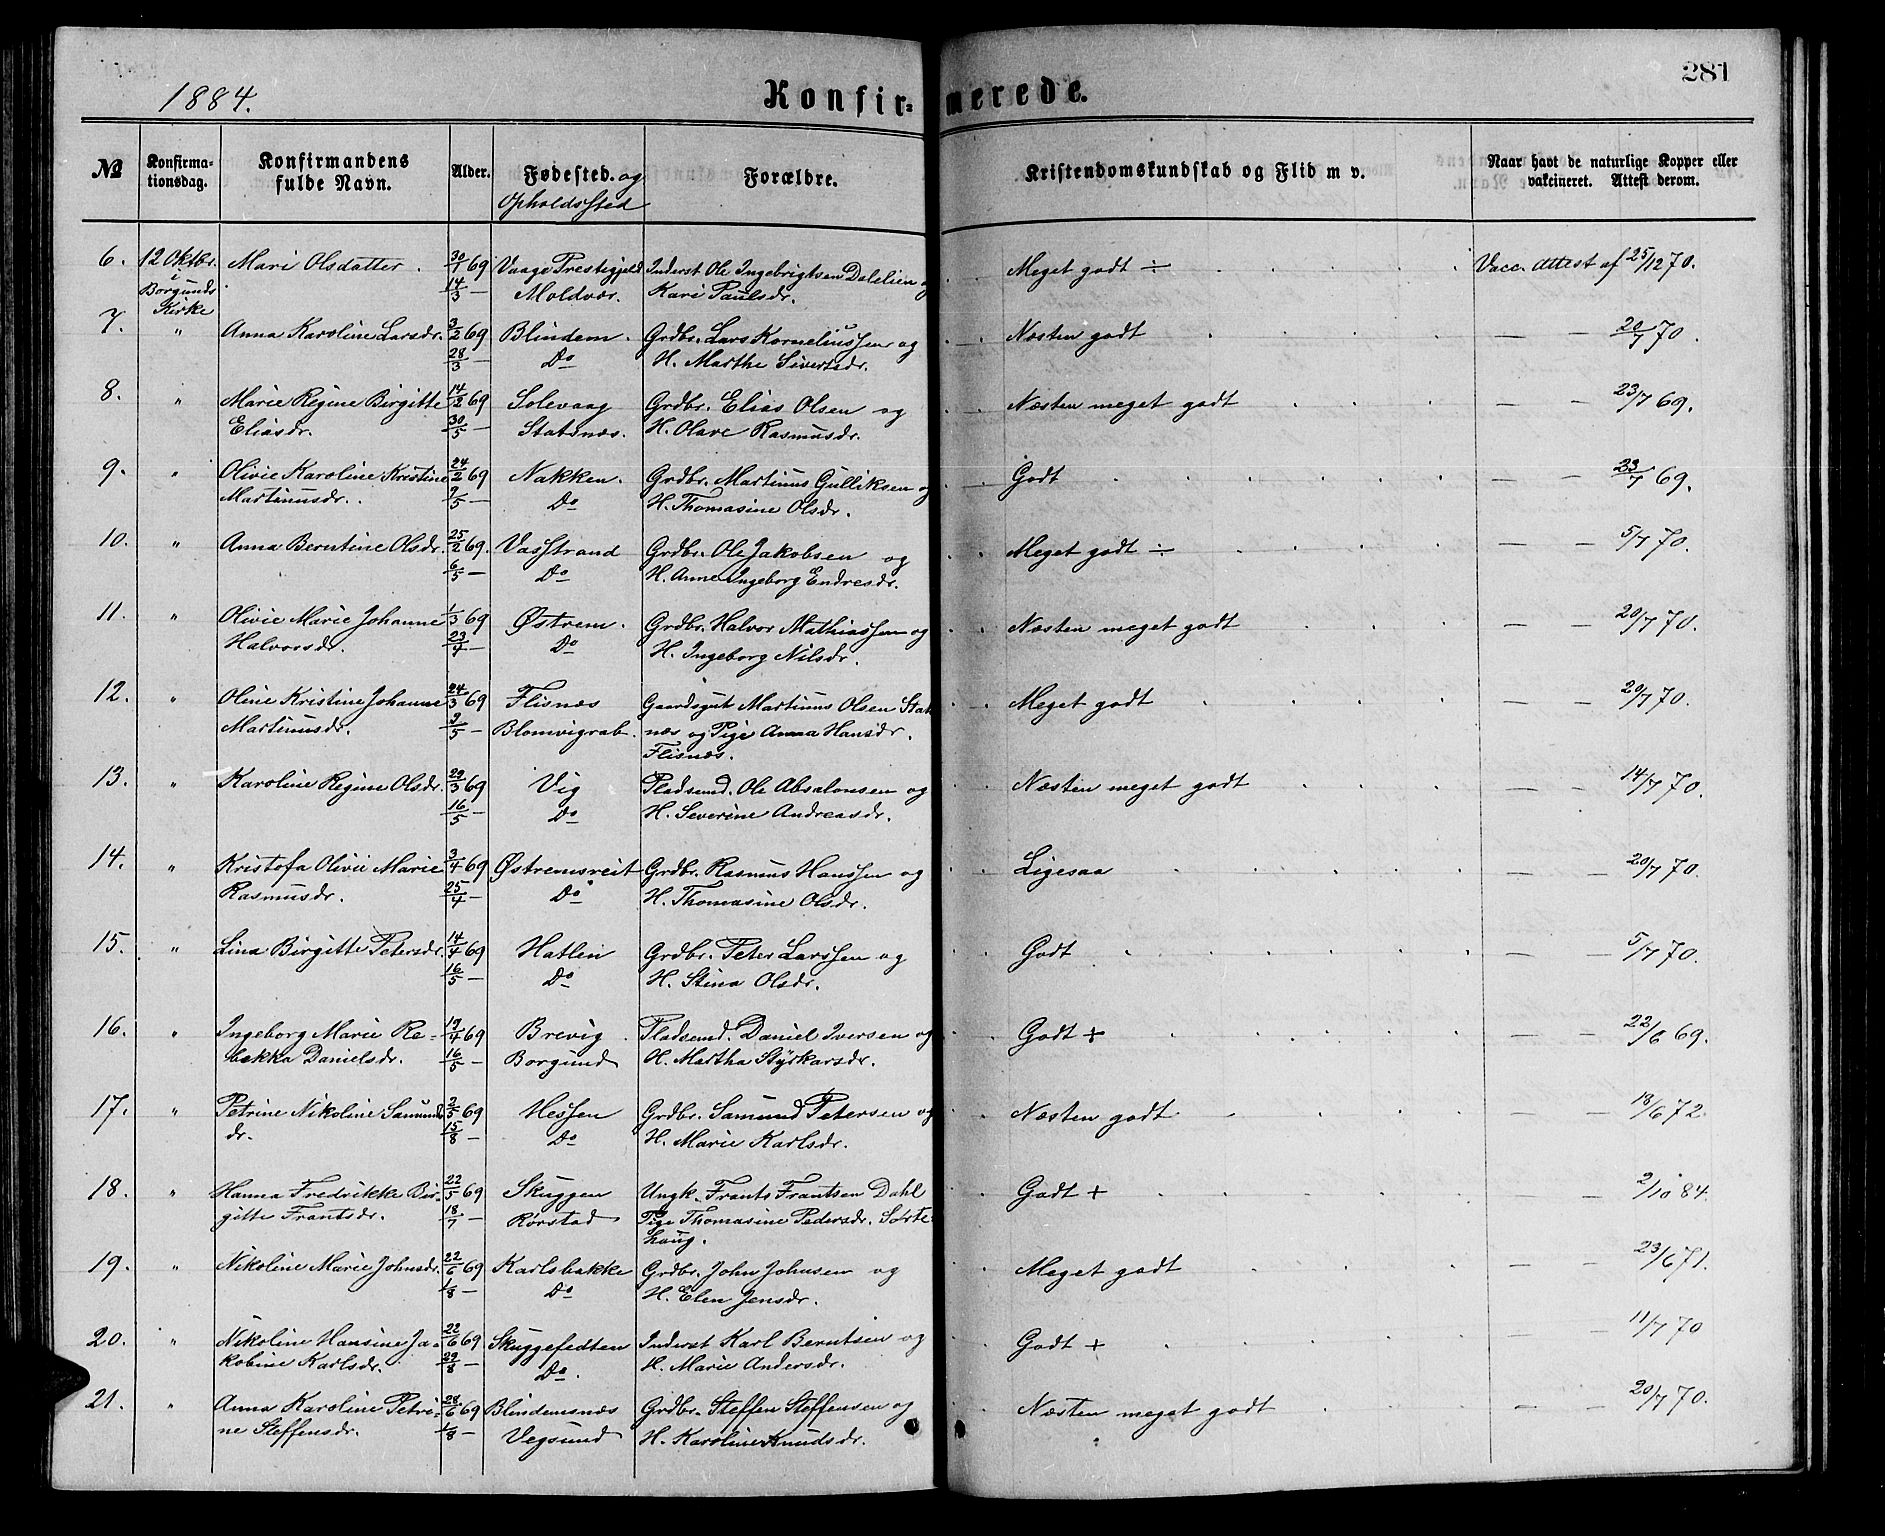 1884. Konfirmerede. 281
№ Konfirmationsdag. Konfirmandens fulde Navn. Alder. Fødested. og Opholdssted Forældre. Kristendomskundskab og Flid m v. Naar havt de naturlige Kopper eller vakcineret. Attest derom.
6. 12 Oktbr. Mari Olsdatter. 30/1 69 Vaage Prestegjeld Inderst Ole Ingebrigtsen Dalelien og Meget godt ÷ Vacc. Attest af 25/12 70.
i Borgunds Kirke 14/3 — Moldvær. Kari Paulsdr.
7. " Anna Karoline Larsdr. 3/2 69 Blindem. Grdbr. Lars Korneliussen og Næsten godt — — 20/7 70.
28/3 — Do H. Marthe Sivertsdr.
8. " Marie Regine Birgitte 14/2 69 Solevaag Grdbr. Elias Olsen og Næsten meget godt — — 23/7 69.
Eliasdr. 30/5 — Statsnæs. H. Olave Rasmusdr.
9. " Olivie Karoline Kristine 24/2 69 Nakken. Grdbr. Martinus Gulliksen og Godt — — 23/7 69.
Martinusdr. 9/5 — Do H. Thomasine Olsdr.
10. " Anna Berntine Olsdr. 25/2 69. Vasstrand Grdbr. Ole Jakobsen og Meget godt ÷ — — 5/7 70.
6/5 — Do H. Anne Ingeborg Endresdr.
11. " Olivie Marie Johanne 1/3 69 Østrem. Grdbr. Halvor Mathiassen og Næsten meget godt — — 20/7 70.
Halvorsdr. 23/4 — Do H. Ingeborg Nilsdr.
12. " Oline Kristine Johanne 24/3 69 Flisnæs Gaardsgut Martinus Olsen Stat- Meget godt — — 20/7 70.
Martinusdr. 2/5 — Blomvigrab. næs og Pige Anna Hansdr.
Flisnæs.
13. " Karoline Regine Olsdr. 29/3 69 Vig Pladsmd. Ole Absalonsen og Næsten meget godt — — 14/7 70.
16/5 — Do H. Severine Andreasdr.
14. " Kristofa Olivie Marie 3/4 69 Østremsreit Grdbr. Rasmus Hanssen og Ligesaa — — 20/7 70.
Rasmusdr. 25/4 — Do H. Thomasine Olsdr.
15. " Lina Birgitte Petersdr. 14/4 69 Hatlen Grdbr. Peter Larssen og Godt — — 5/7 70.
16/5 — Do H. Stina Olsdr.
16. " Ingeborg Marie Re- 19/4 69 Brevig. Pladsmd. Daniel Iversen og Godt + — — 22/6 69.
bekka Danielsdr. 16/5 — Borgund H. Martha Styrkarsdr.
17. " Petrine Nikoline Samunds 2/5 69 Hessen Grdbr. Samund Petersen og Næsten godt — — 18/6 72.
dr. 15/8 — Do H. Marie Karlsdr.
18. " Hanna Fredrikke Bir- 22/5 69 Skuggen Ungk. Frants Frantsen Dahl Godt + — 2/10 84.
gitte Frantsdr. 18/7 — Rørstad Pige Thomasine Pedersdr. Sorte-
haug.
19. " Nikoline Marie Johnsdr. 22/6 69 Karlsbakke Grdbr. John Johnsen og Meget godt — — 23/6 71.
1/8 — Do H. Elen Jensdr.
20. " Nikoline Hansine Ja- 22/6 69 Skuggefedten Inderst Karl Berntsen og Godt + — — 11/7 70
kobine Karlsdr. 29/8 — Do. H. Marie Andersdr.
21. " Anna Karoline Petri- 28/6 69 Blindemsnæs Grdbr. Steffen Steffensen og Næsten meget godt — — 20/7 70.
ne Steffensdr. 1/8 — Vegsund H. Karoline Knudsdr.